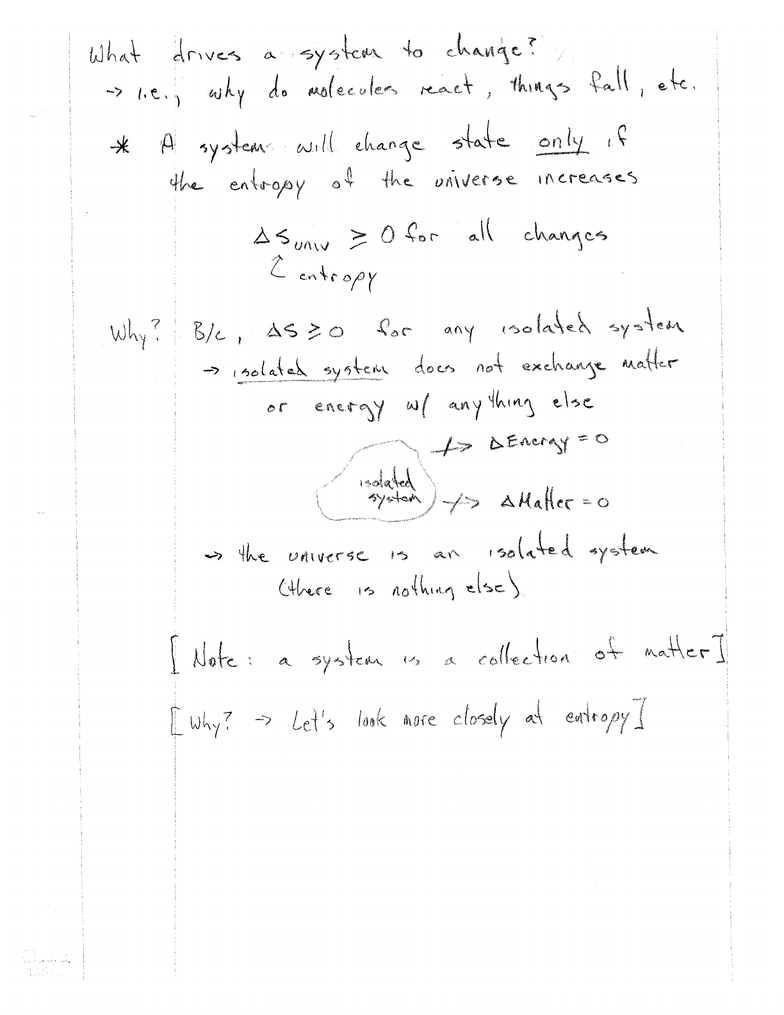 What drives a system to change?
→ i.e., why do molecules react, things fall, etc.
* A system will change state only if
the entropy of the universe increases
ΔS univ ≥ 0 for all changes
entropy
Why? B/c, ΔS ≥ 0 for any isolated system
→ isolated system does not exchange matter
or energy w/ anything else
ΔEnergy = 0
isolated
system
ΔMatter = 0
→ the universe is an isolated system
(there is nothing else)
[Note: a system is a collection of matter]
[Why? → Let's look more closely at entropy]